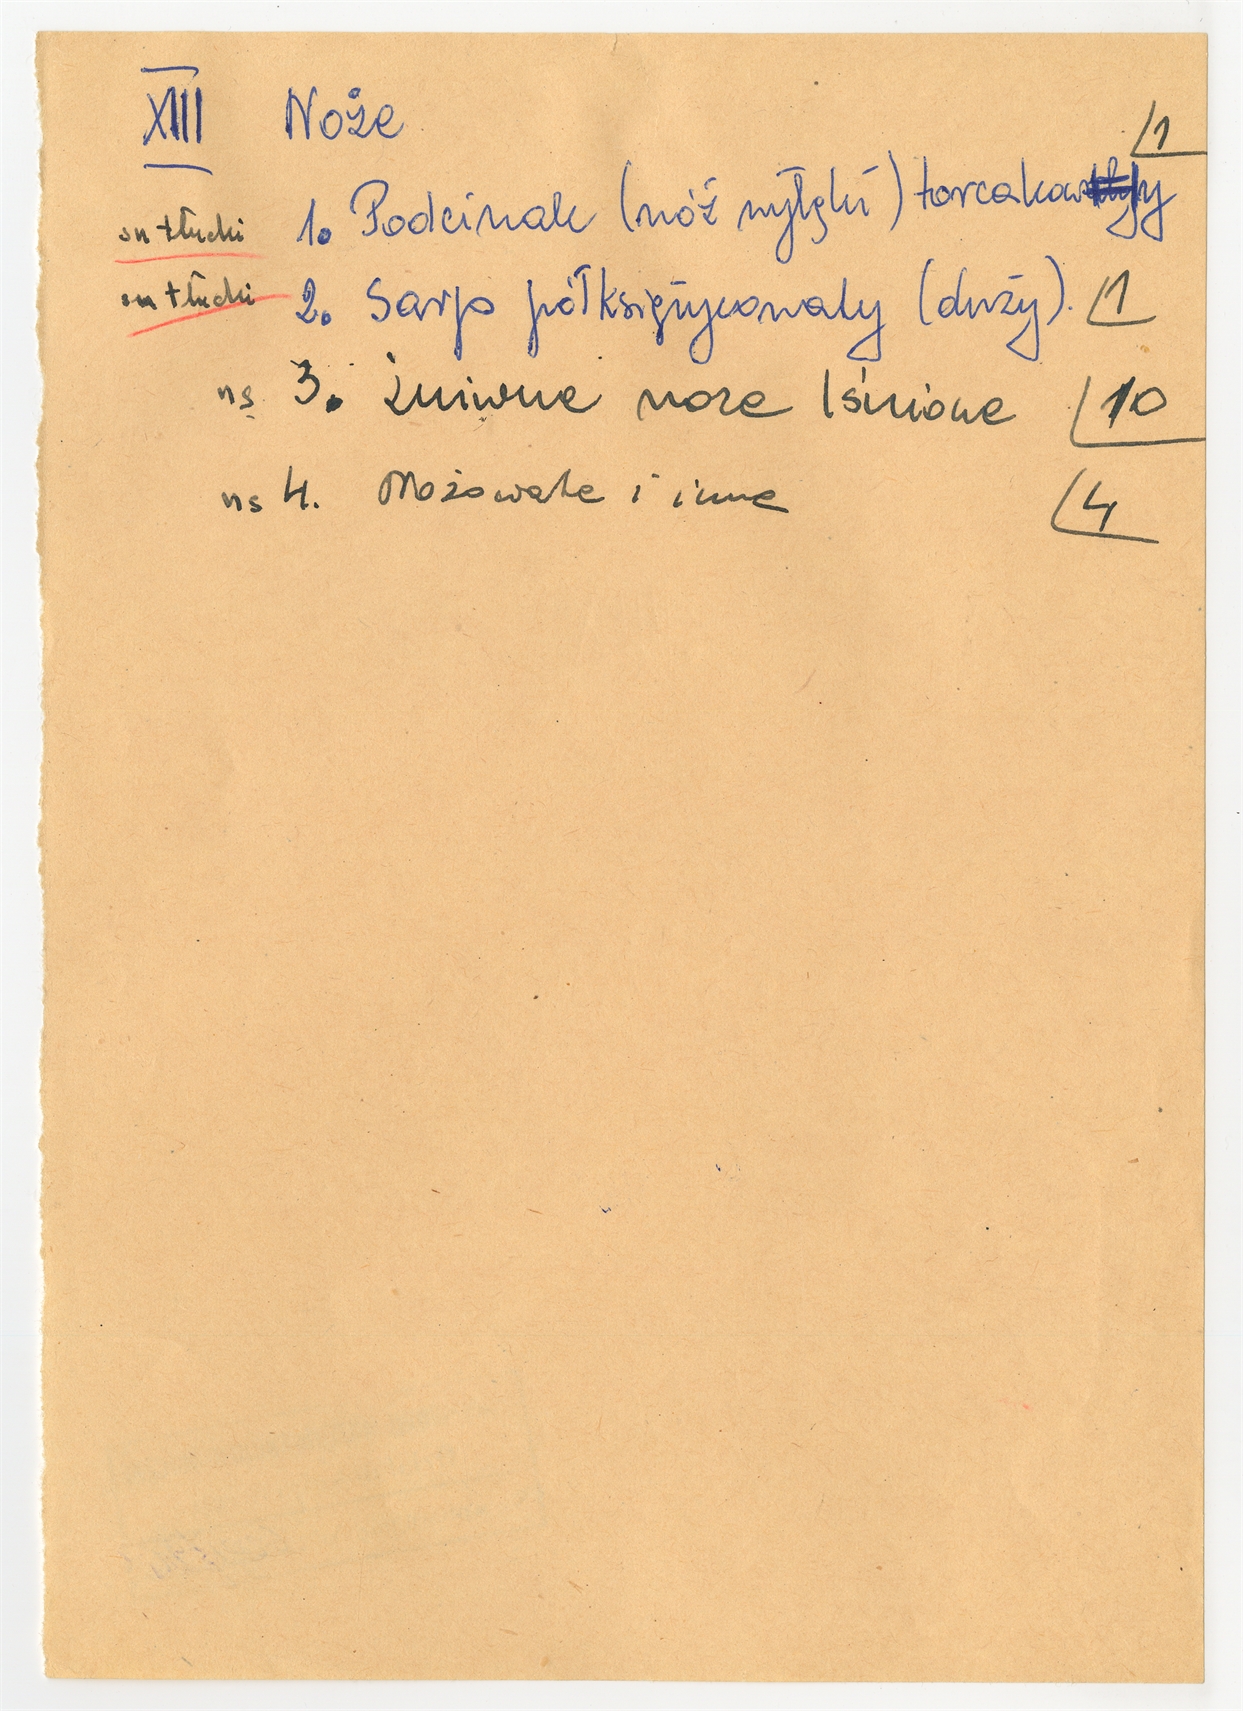 XIII Noże
1
sm tłucki 1. Podcinak (nóż wyłęki) torcakowy
sm tłucki 2. Sarp półksiężycowaty (duży). 1
ns 3. Żniwne noże lśniące 10
ns 4. Nożowate i inne 4